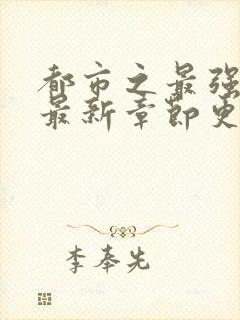 都市之最强
最新章节更
李奉先